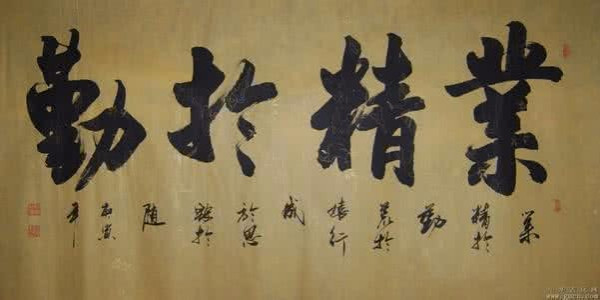 業精於勤
業
精於
勤
荒於
嬉行
成
於思
毀於
随